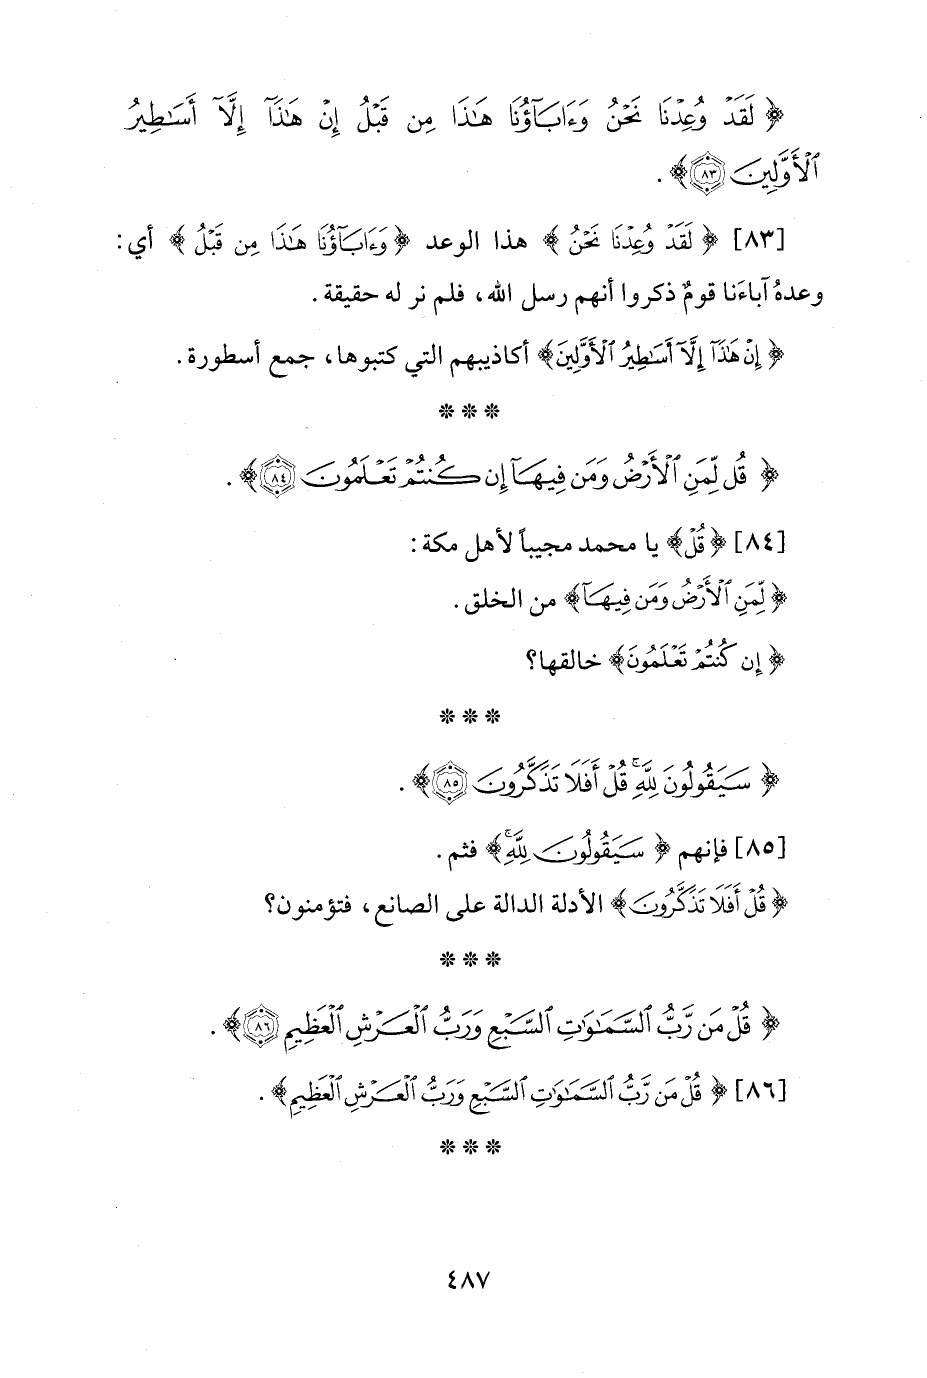 ﴿ لَقَدْ وُعِدْنَا نَحْنُ وَءَابَآؤُنَا هَٰذَا مِن قَبْلُ إِنْ هَٰذَآ إِلَّآ أَسَٰطِيرُ
ٱلْأَوَّلِينَ ٨٣﴾ .
[٨٣] ﴿ لَقَدْ وُعِدْنَا نَحْنُ ﴾ هذا الوعد ﴿وَءَابَآؤُنَا هَٰذَا مِن قَبْلُ ﴾ أي:
وعدهُ آباءَنا قومٌ ذكروا أنهم رسل الله، فلم نر له حقيقة.
﴿ إِنْ هَٰذَآ إِلَّآ أَسَٰطِيرُ ٱلْأَوَّلِينَ﴾ أكاذيبهم التي كتبوها، جمع أسطورة.
* * *
﴿ قُل لِّمَنِ ٱلْأَرْضُ وَمَن فِيهَآ إِن كُنتُمْ تَعْلَمُونَ ٨٤﴾ .
[٨٤] ﴿ قُلْ﴾ يا محمد مجيباً لأهل مكة:
﴿ لِّمَنِ ٱلْأَرْضُ وَمَن فِيهَآ﴾ من الخلق.
﴿ إِن كُنتُمْ تَعْلَمُونَ﴾ خالقها؟
* * *
﴿ سَيَقُولُونَ لِلَّهِ ۚ قُلْ أَفَلَا تَذَكَّرُونَ ٨٥﴾ .
[٨٥] فإنهم ﴿ سَيَقُولُونَ لِلَّهِ ۚ﴾ فثم.
﴿ قُلْ أَفَلَا تَذَكَّرُونَ﴾ الأدلة الدالة على الصانع، فتؤمنون؟
* * *
﴿ قُلْ مَن رَّبُّ ٱلسَّمَٰوَٰتِ ٱلسَّبْعِ وَرَبُّ ٱلْعَرْشِ ٱلْعَظِيمِ ٨٦﴾ .
[٨٦] ﴿ قُلْ مَن رَّبُّ ٱلسَّمَٰوَٰتِ ٱلسَّبْعِ وَرَبُّ ٱلْعَرْشِ ٱلْعَظِيمِ﴾ .
* * *
٤٨٧